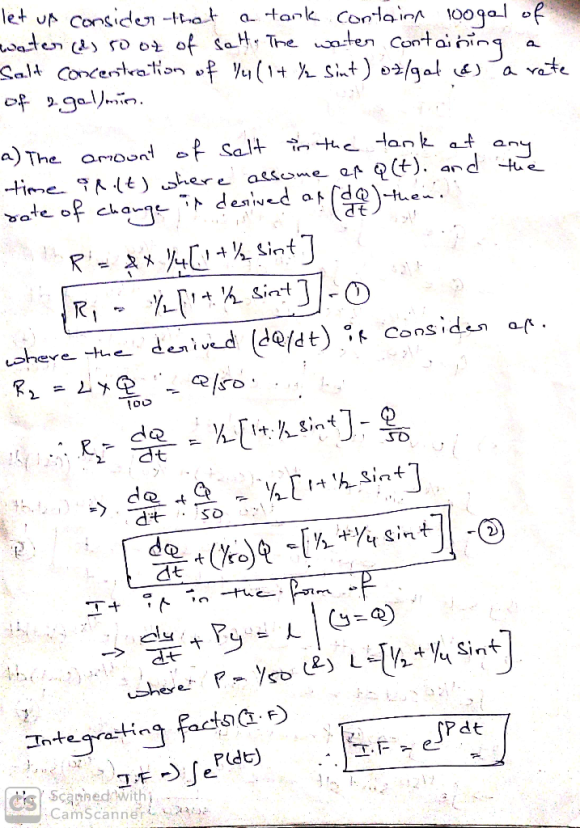 let us consider that a tank contains 100gal of
water (&) 50 oz of salt. The water containing a
Salt concentration of 1/4 (1+ 1/2 Sint) oz/gal (&) a rate
of 2 gal/min.
a) The amount of salt in the tank at any
time is (t) where assume as Q(t). and the
rate of change is derived as (dQ/dt) then.
R = 2 x 1/4 [1 + 1/2 Sint]
R1 = 1/2 [1 + 1/2 Sint] - ①
where the derived (dQ/dt) is consider as.
R2 = 2 x Q/100 = Q/50.
∴ R2 = dQ/dt = 1/2 [1+ 1/2 Sint] - Q/50
=> dQ/dt + Q/50 = 1/2 [1 + 1/2 Sint]
dQ/dt + (1/50) Q = [1/2 + 1/4 Sint] - ②
It is in the form of
→ dy/dt + P.y = L | (y=Q)
where P = 1/50 (&) L = [1/2 + 1/4 Sint]
Integrating factor (I.F)
I.F => ∫e^P(dt) ∴ I.F = e^∫Pdt
CS Scanned with
CamScanner